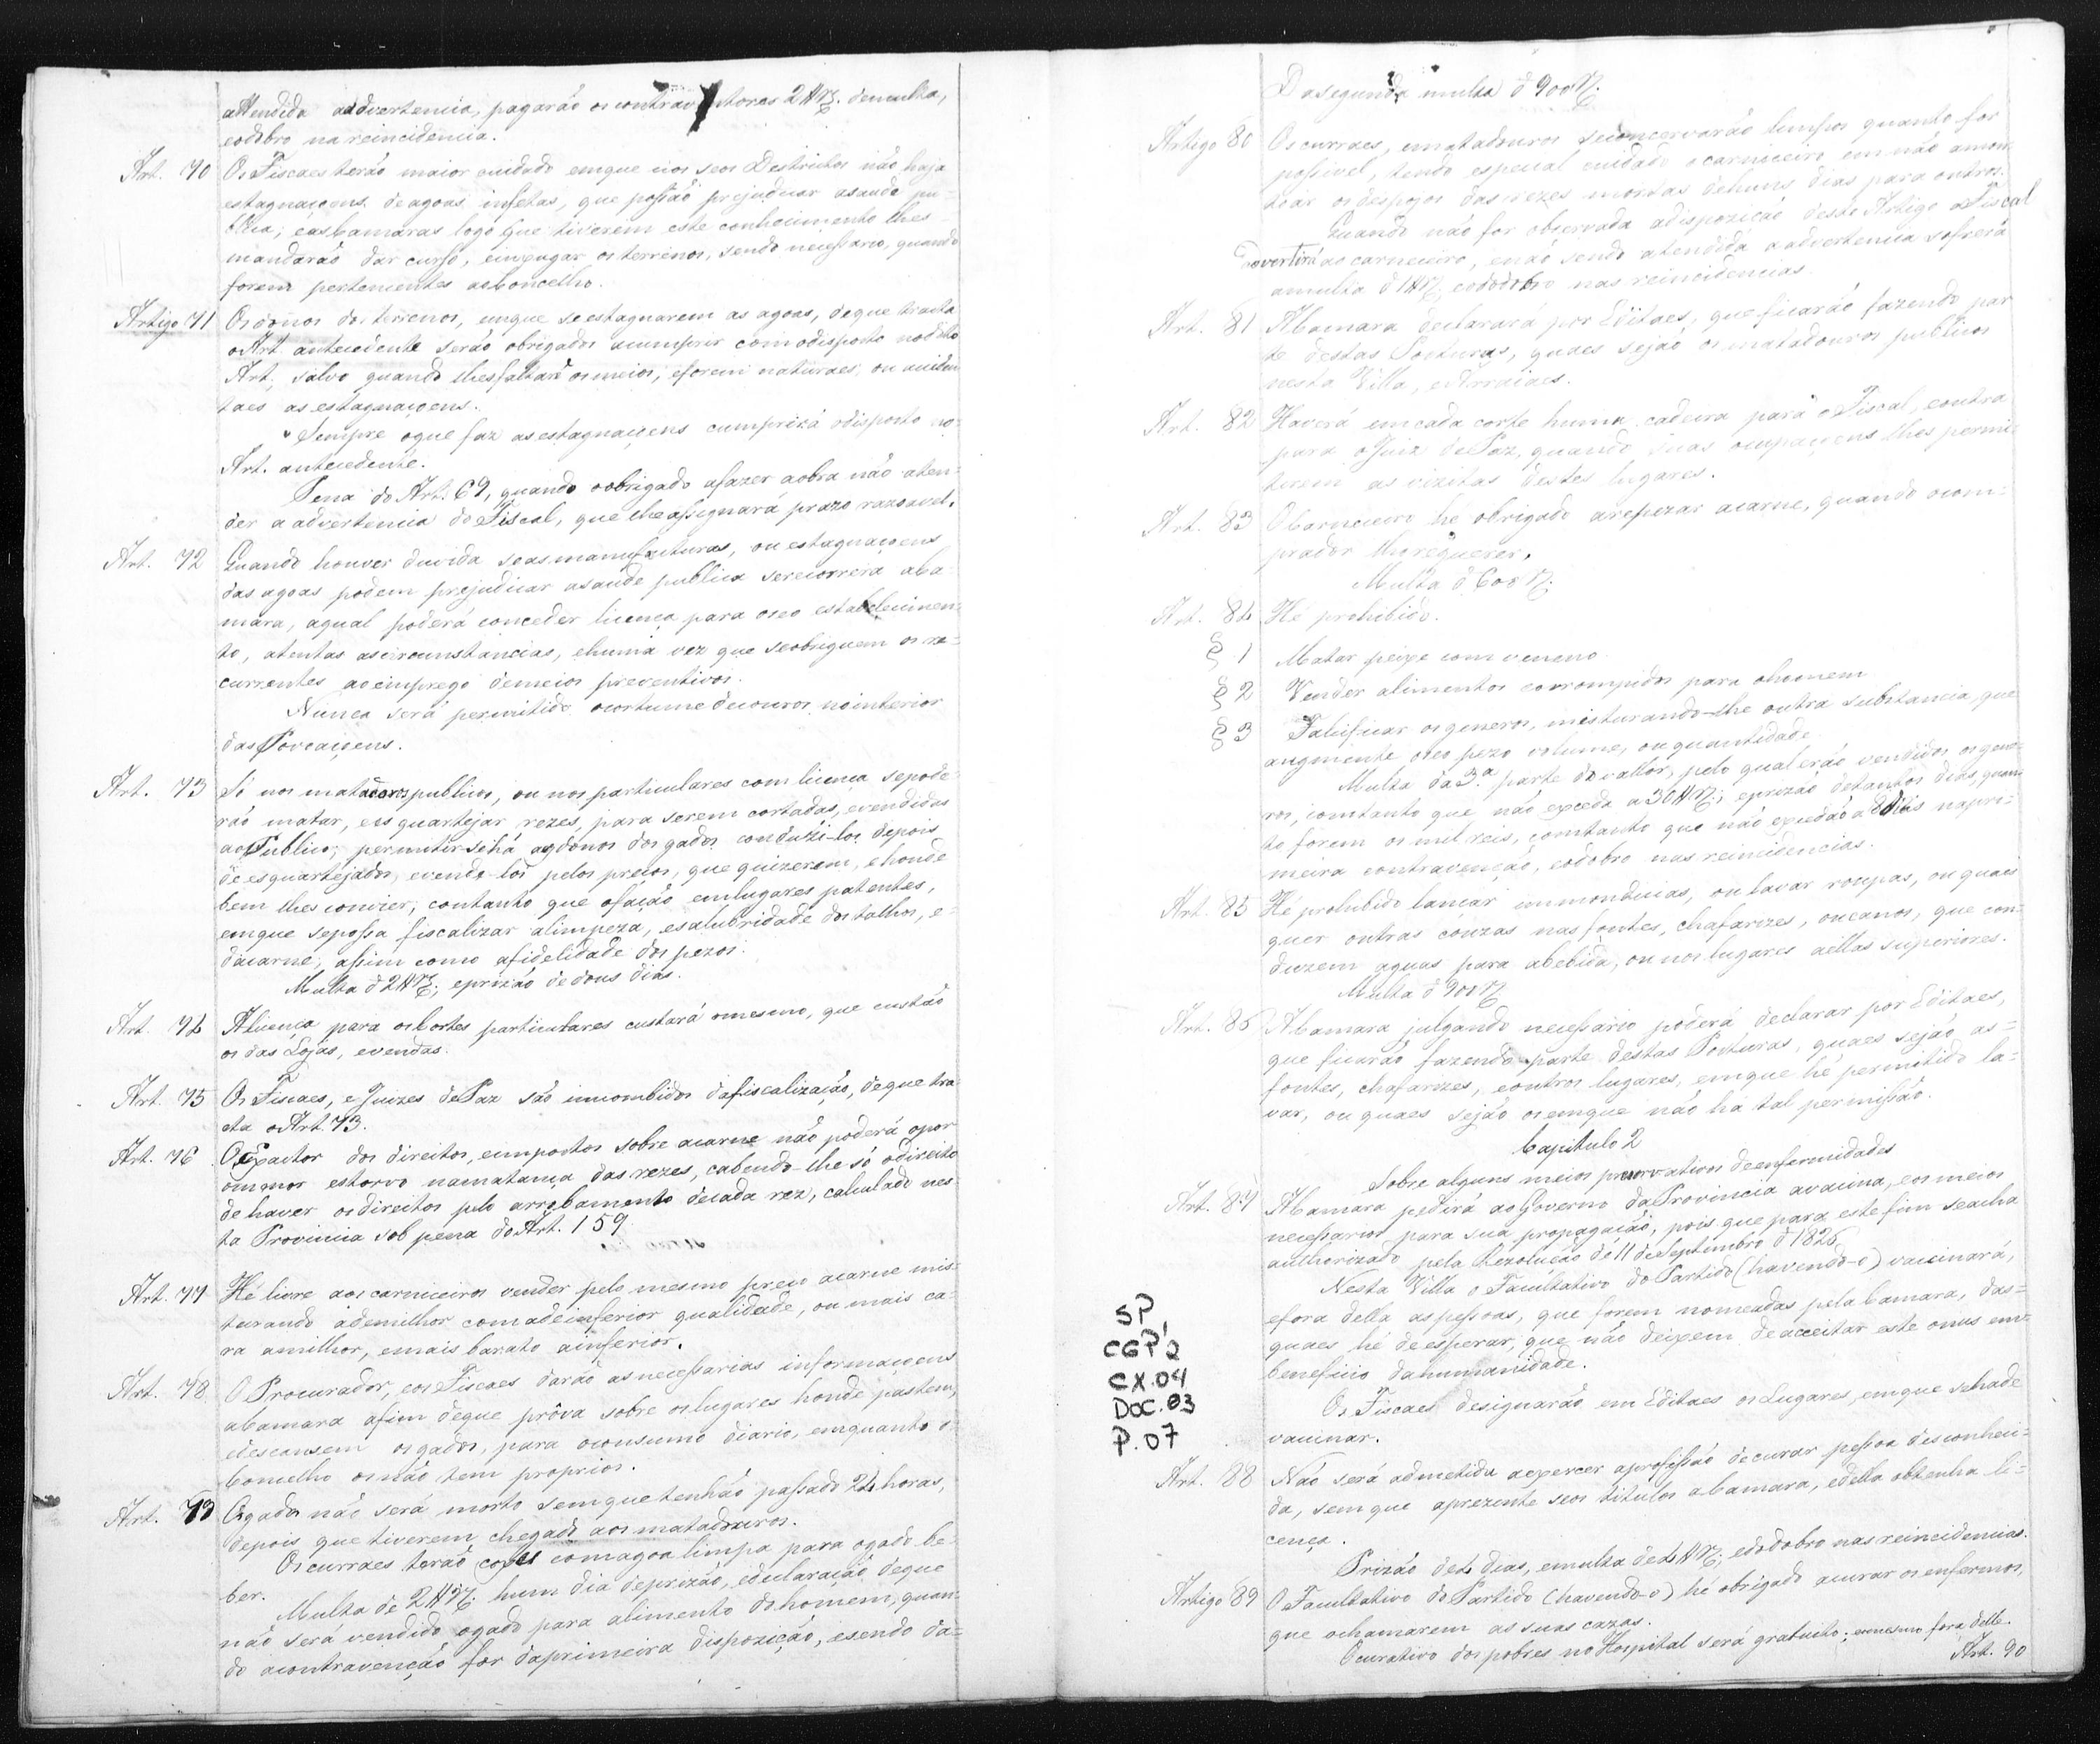 attendida aadvertencia, pagarão os contraventores 2$rs. demulta,
eodobro na reincidencia.
Art. 70 Os Fiscaes terão maior cuidado emque nos seos Destrictos não haja
estagnaçoens deagoas infetas, que possão prejudicar asaude pu=
blica; easCamaras logo que tiverem este conhecimento lhes
mandarão dar curso, eenxugar os terrenos, sendo necessario, quando
forem pertencentes aoConcelho.
Artigo 71 Os donos dos terrenos, emque se estagnarem as agoas, deque tracta
oArt. antecedente serão obrigados acumprir comodisposto nodito
Art., salvo quando lhesfaltarē osmeios, eforem naturaes, ou aciden
taes as estagnaçoens.
Sempre oque faz asestagnaçoens cumprirá odisposto no
Art. antecedente.
Pena do Art. 69, quando oobrigado afazer aobra não aten=
der aadvertencia do Fiscal, que lheassignará prazo razoavel.
Art. 72 Quando houver duvida seasmanufacturas, ou estagnaçoens
das agoas podem prejudicar asaude publica serecorrera aCa=
mara, aqual poderá conceder licença para oseo estabelecimen=
to, atentas ascircunstancias, ehuma vez que seobriguem os re=
currentes aoemprego demeios preventivos.
Nunca será permitido ocortume decouros nointerior
dasPovoaçoens.
Art. 73 Só nos matadoros publicos, ou nos particulares com licença sepode=
rão matar, eesquartejar rezes, para serem cortadas, evendidas
aoPublico; permitir-sehá aosdonos dos gados conduzi-los depois
de esquartejados, evende-los pelos preços, que quizerem, ehonde
bem lhes convier, contanto que ofação emlugares patentes,
emque sepossa fiscalizar alimpeza, esalubridade dos talhos, e
dacarne, assim como afidelidade dos pezos.
Multa d'2$rs; eprizão de dous dias.
Art. 74 Alicença para osCortes particulares custará omesmo, que custão
os das Lojas, evendas.
Art. 75 Os Fiscaes, e Juizes dePaz são incombidos dafiscalização, deque tra
cta oArt. 73.
Art. 76 OExactor dos direitos, eimpostos sobre acarne não poderá opor
omenor estorvo namatança das rezes, cabendo-lhe só odireito
de haver osdireitos pelo arrobamento decada rez, calculado nes=
ta Provincia sob pena do Art. 159
Art. 77 Hé livre aos carniceiros vender pelo mesmo preço acarne mis=
turando ademilhor comadeinferior qualidade, ou mais ca=
ra amilhor, emais barato ainferior.
Art. 78 O Procurador, eos Fiscaes darão asnecessarias informaçoens
aCamara afim deque prôva sobre oslugares honde pastem,
edescansem osgados, para oconsumo diario, emquanto o
Concelho osnão tem proprios.
Art. 79 Ogado não será morto semquetenhão passado 24 horas,
depois que tiverem chegado aos matadouros.
Os curraes terão copos comagoa limpa para ogado be=
ber.
Multa de 2$rs. hum dia deprizão, edeclaração deque
não será vendido ogado para alimento do homem, quan=
do acontravenção for daprimeira dispozição, esendo da=
Dasegunda multa d'900rs.
Artigo 80 Os curraes, ematadouros seconcervarão limpos quanto for
possivel, tendo especial cuidado ocarniceiro em não amon
toar osdespojos dasrezes mortas dehuns dias para outros.
Quando não for observada adispozição deste Artigo oFiscal
advertirá ao carniceiro, enão sendo atendida aadvertencia sofrerá
amulta d'1$rs, eododobro nas reincidencias.
Art. 81 ACamara declarará por Editaes, que ficarão fazendo par
te destas Posturas, quaes sejão os matadouros publicos
nesta Villa, eArraiaes.
Art. 82 Haverá emcada corte huma cadeira para oFiscal, eoutra
para oJuiz dePaz, quando suas ocupaçoens lhes permi=
tirem as vizitas destes lugares.
Art. 83 Ocarniceiro hé obrigado arepezar acarne, quando ocom=
prador lhorequerer.
Multa d'600rs.
Art. 84 Hé prohibido.
§ 1 Matar peixe com veneno.
§ 2 Vender alimentos corrompidos para ohomem
§ 3 Falsificar osgeneros, misturando-lhe outra substancia, que
augmente oseo pezo volume, ouquantidade.
Multa da3.ª parte dovallor, pelo qual erão vendidos osgene=
ros, comtanto que não exceda a30$rs; eprizão detantos dias, quan
to forem os mil reis, comtanto que não excedão a 8 dias napri=
meira contravenção, eodobro nas reincidencias.
Art. 85 Hé prohibido lançar immondicias, ou lavar roupas, ou quaes
quer outras couzas nasfontes, chafarizes, oucanos, que con=
duzem aguas para abebida, ou nos lugares aellas superiores.
Multa d'900rs
Art. 86 ACamara julgando necessario poderá declarar por Editaes,
que ficarão fazendo parte destas Posturas, quaes sejão as=
fontes, chafarizes, eoutros lugares, emque hé permitido la=
var, ou quaes sejão osemque não há tal permissão.
Capitulo 2
Sobre alguns meios prezervativos deenfermidades
Art. 87 ACamara pedirá aoGoverno daProvincia avacina, eos meios
necessarios para sua propagação, pois que para este fim seacha
authorizado pela Rezolução de 11 deSeptembro d'1826
Nesta Villa o Facultativo do Partido (havendo-o) vaccinará,
efora della aspessoas, que forem nomeadas pelaCamara, das=
quaes hé deesperar, que não deixem deacceitar este onus em=
beneficio dahummanidade.
Os Fiscaes designarão em Editaes osLugares, emque sehade
vaccinar.
Art. 88 Não será admetida aexercer aprofissão decurar pessoa desconheci=
da, semque aprezente seos titulos aCamara, edella obtenha li=
cença.
Prizão de4 dias, emulta de4$rs; edodobro nas reincidencias.
Artigo 89 O Facultativo do Partido (havendo-o) hé obrigado acurar os enfermos,
que ochamarem as suas cazas.
Ocurativo dos pobres no Hospital será gratuito; eomesmo fora delle.
Art. 90
SP
CGP¹2
CX.04
DOC.03
P.07